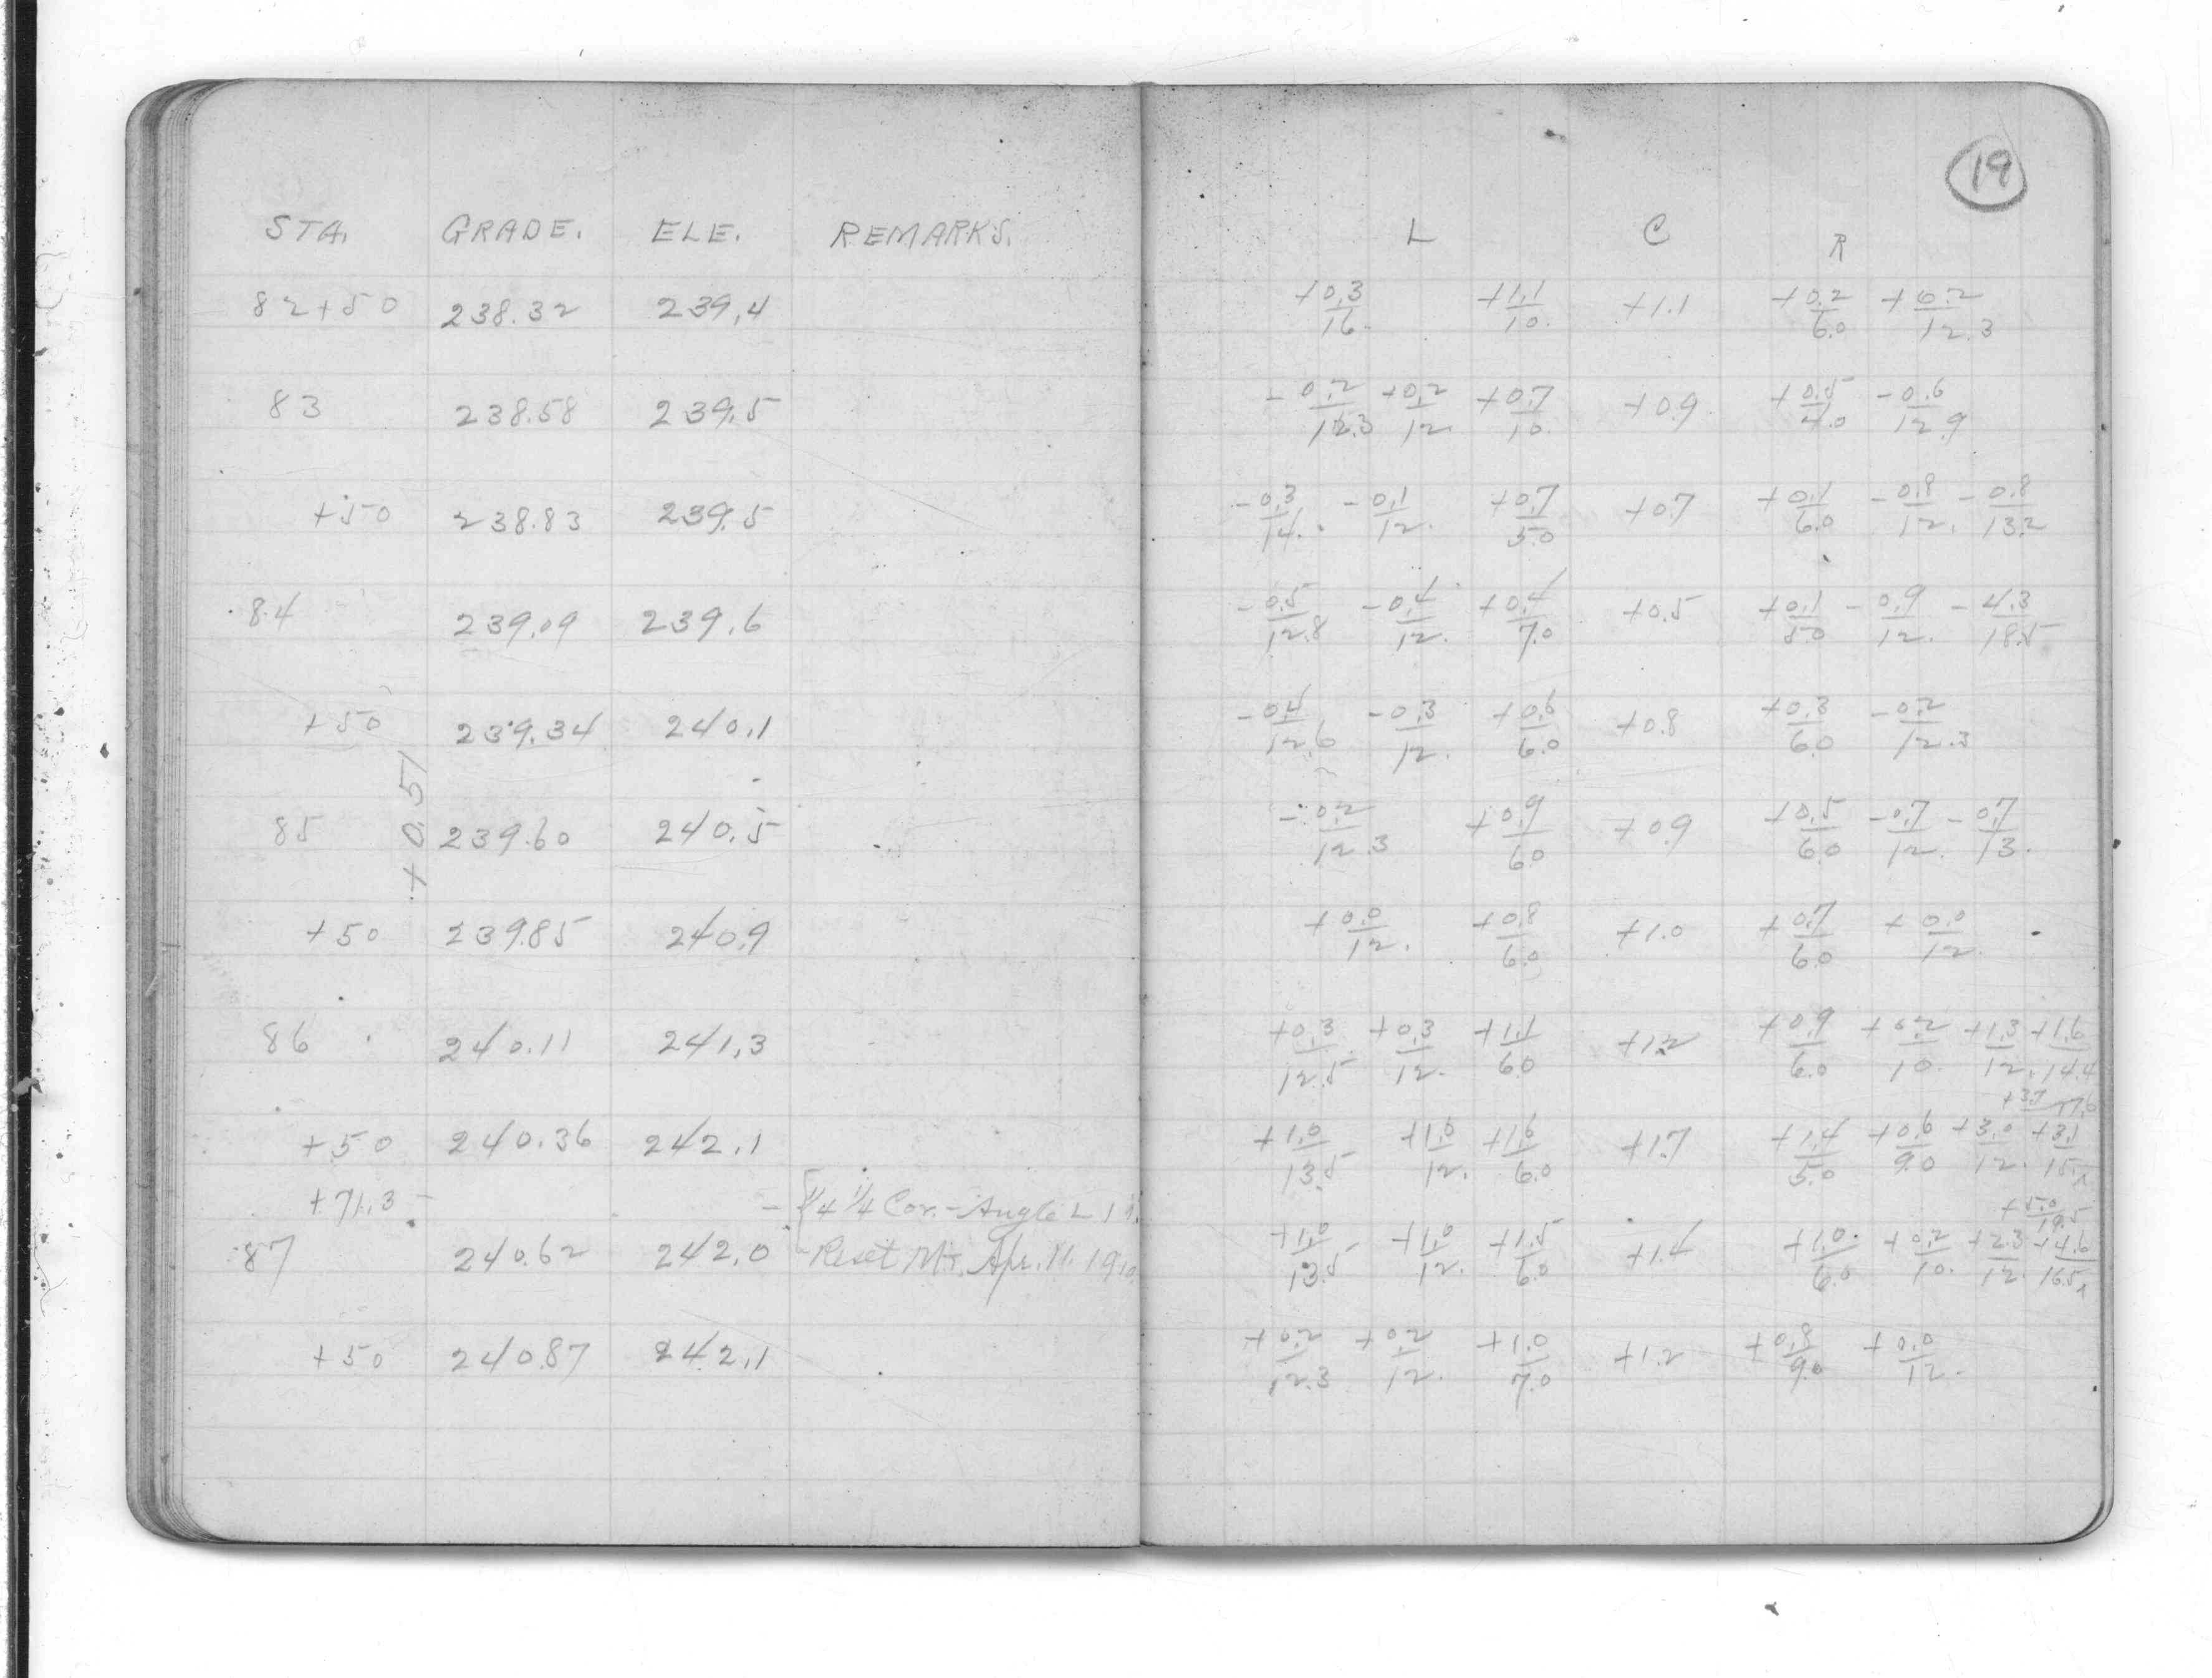 19
STA. GRADE. ELE. REMARKS. L C R
82+50 238.32 239.4 +0.3/16. +1.1/10. +1.1 +0.2/6.0 +0.2/12.3
83 238.58 239.5 -0.2/12.3 +0.2/12 +0.7/10. +0.9 +0.5/4.0 -0.6/12.9
+50 238.83 239.5 -0.3/14. -0.1/12. +0.7/5.0 +0.7 +0.1/6.0 -0.8/12. -0.8/13.2
84 239.09 239.6 -0.5/12.8 -0.4/12. +0.4/7.0 +0.5 +0.1/5.0 -0.9/12. -4.3/18.5
+50 239.34 240.1 -0.4/12.6 -0.3/12. +0.6/6.0 +0.8 +0.3/6.0 -0.2/12.3
+0.51
85 239.60 240.5 -0.2/12.3 +0.9/6.0 +0.9 +0.5/6.0 -0.7/12. -0.7/13.
+50 239.85 240.9 +0.0/12. +0.8/6.0 +1.0 +0.7/6.0 +0.0/12
86 240.11 241.3 +0.3/12.5 +0.3/12. +1.1/6.0 +1.2 +0.9/6.0 +0.2/10. +1.3/12. +1.6/14.4
+3.7/17.6
+50 240.36 242.1 +1.0/13.5 +1.0/12. +1.6/6.0 +1.7 +1.4/5.0 +0.6/9.0 +3.0/12. +3.1/15.
+71.3 - - {1/4 1/4 Cor. - Angle L
+5.0/19.5
87 240.62 242.0 -Reset Mr. Apr. 11. 1910. +1.0/13.5 +1.0/12. +1.5/6.0 +1.4 +1.0/6.0 +0.2/10. +2.3/12. +4.6/16.5
+50 240.87 242.1 +0.2/12.3 +0.2/12. +1.0/7.0 +1.2 +0.8/9.0 +0.0/12.